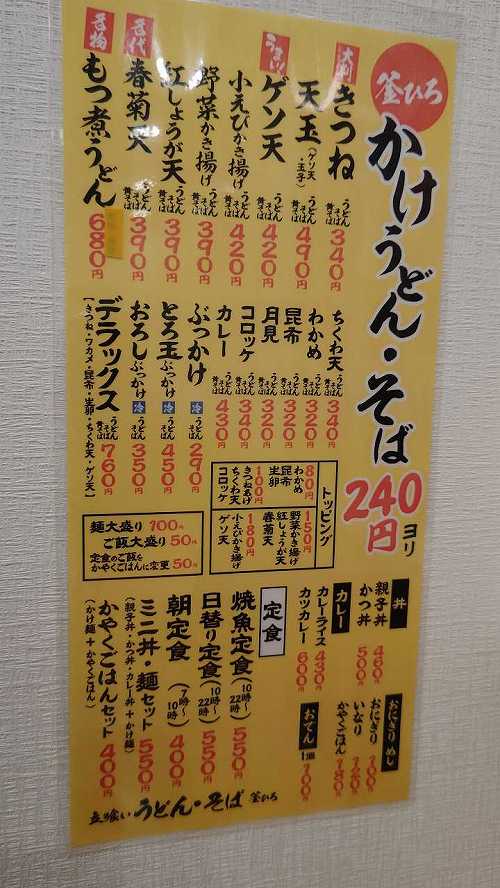 釜ひろ
かけうどん・そば
240円ヨリ
大判
きつね うどん そば 340円
天玉(ゲソ天・玉子) うどん そば 490円
うまい!
ゲソ天 うどん そば 420円
小えびかき揚げ うどん そば 420円
野菜かき揚げ うどん そば 390円
紅しょうが天 うどん そば 390円
春菊天 うどん そば 390円
名物
もつ煮うどん 680円
ちくわ天 うどん そば 340円
わかめ うどん そば 320円
昆布 うどん そば 320円
月見 うどん そば 320円
コロッケ うどん そば 340円
カレー うどん そば 430円
ぶっかけ 冷 うどん そば 290円
とろ玉ぶっかけ 冷 うどん そば 450円
おろしぶっかけ 冷 うどん そば 350円
デラックス うどん そば 760円
【きつね・ワカメ・昆布・生卵・ちくわ天・ゲソ天】
トッピング
わかめ 昆布 生卵 80円
きつねあげ ちくわ天 コロッケ 100円
野菜かき揚げ 紅しょうが天 春菊天 150円
小えびかき揚げ ゲソ天 180円
麺大盛り 100円
ご飯大盛り 50円
定食のご飯を
かやくごはんに変更 50円
丼
親子丼 460円
かつ丼 500円
カレー
カレーライス 430円
カツカレー 600円
おにぎり めし
おにぎり 100円
いなり 120円
かやくごはん 180円
おでん
1個 100円
定食
焼魚定食(10時〜22時) 550円
日替り定食(10時〜22時) 550円
朝定食(7時〜10時) 400円
ミニ丼・麺セット 550円
(親子丼・かつ丼・カレー丼+かけ麺)
かやくごはんセット 400円
(かけ麺+かやくごはん)
立り喰い うどん・そば 釜ひろ